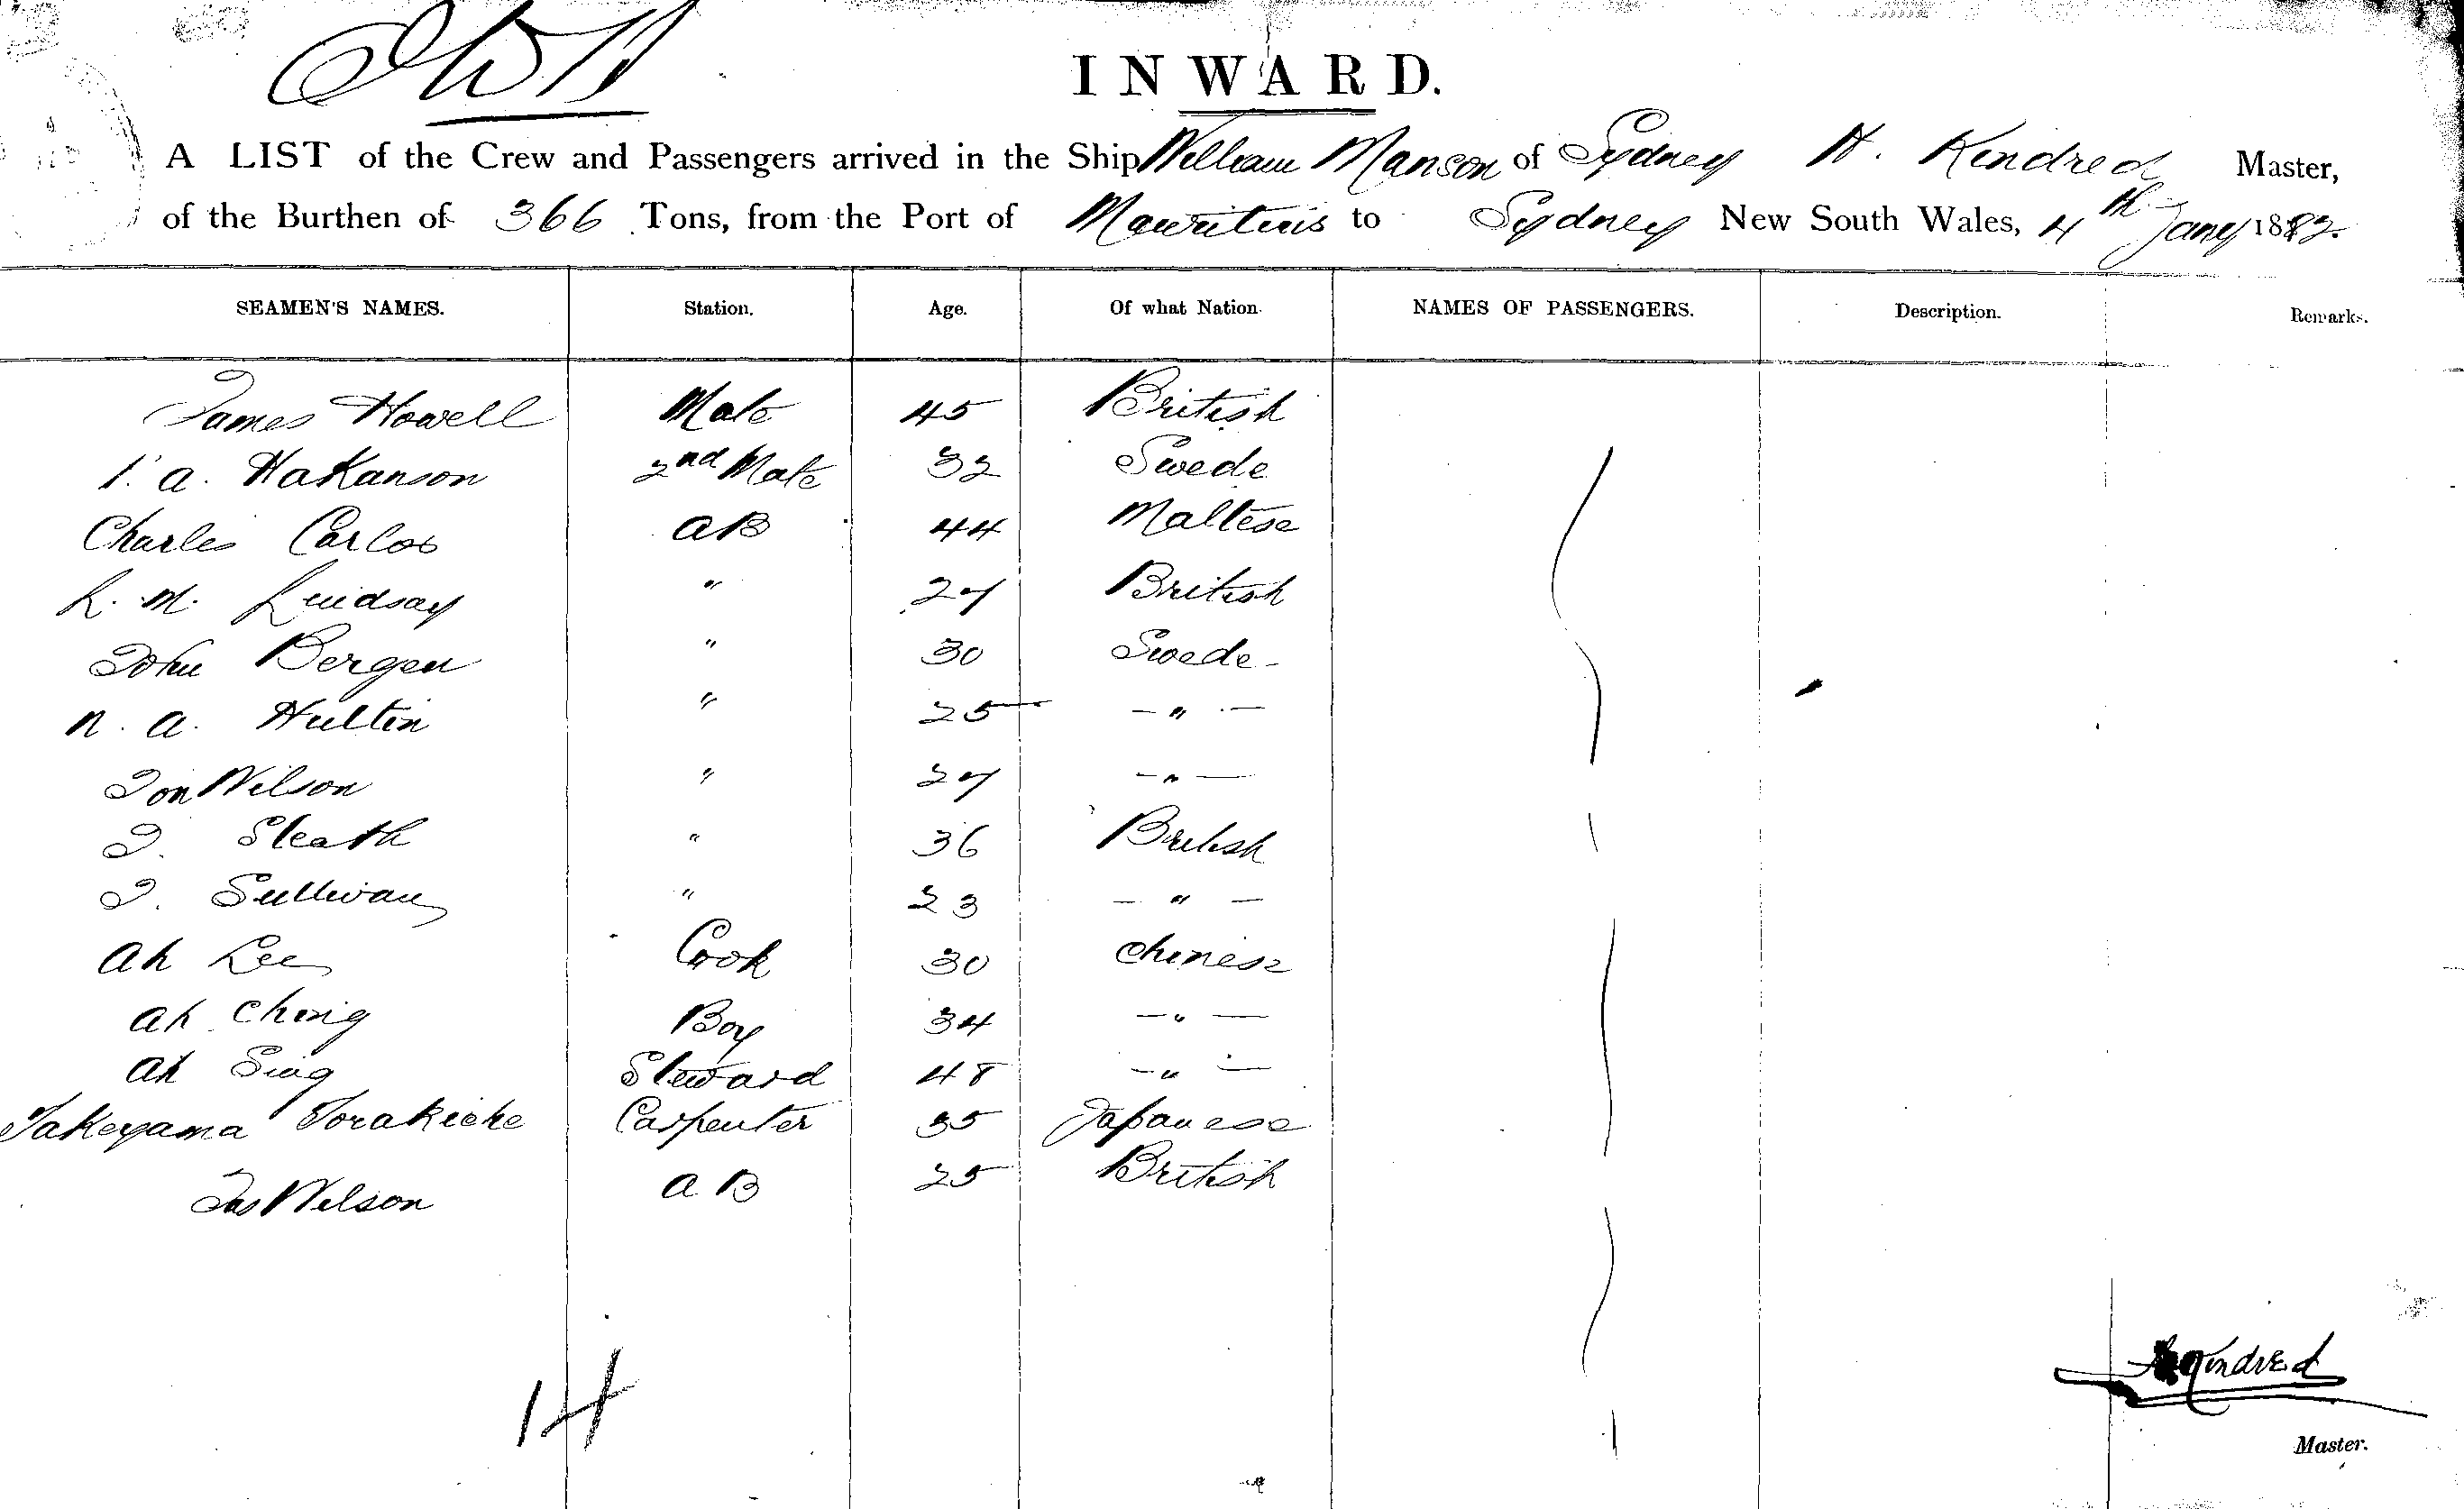 INWARD.
A LIST of the Crew and Passengers arrived in the Ship William Manson of Sydney H. Kindred Master,
of the Burthen of 366 Tons, from the Port of Mauritius to Sydney New South Wales, 4th Jany 1882.
SEAMEN'S NAMES. Station. Age. Of what Nation. NAMES OF PASSENGERS. Description. Remarks.
James Howell Mate 45 British
a. Hakanson 2nd Mate 32 Swede
Charles Carlos AB 44 Maltese
L. M. Lindsay " 27 British
John Bergen " 30 Swede -
N. A. Hultin " 25 - " -
Jon Wilson " 27 - " -
J. Sleath " 36 British
J. Sullivan " 23 - " -
Ah Lee Cook 30 Chinese
Ah Chong Boy 34 - " -
Ah Sing Steward 48 - " -
Takeyama Torakiche Carpenter 35 Japanese
Jas Wilson A B 25 British
14
H Kindred
Master.